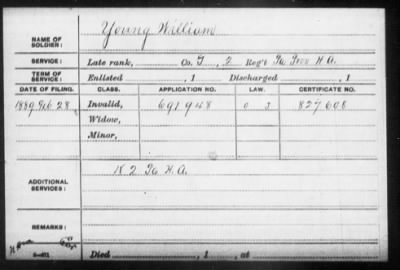 NAME OF SOLDIER: Young William
SERVICE: Late rank, Co. G, 2 Reg't Pa Prov H.A.
TERM OF SERVICE: Enlisted , 1 Discharged , 1
DATE OF FILING. CLASS. APPLICATION NO. LAW. CERTIFICATE NO.
1889 Feb 28 Invalid, 691948 827608
Widow,
Minor,
ADDITIONAL SERVICES: K 2 Pa H.A.
REMARKS:
Died , 1 , at